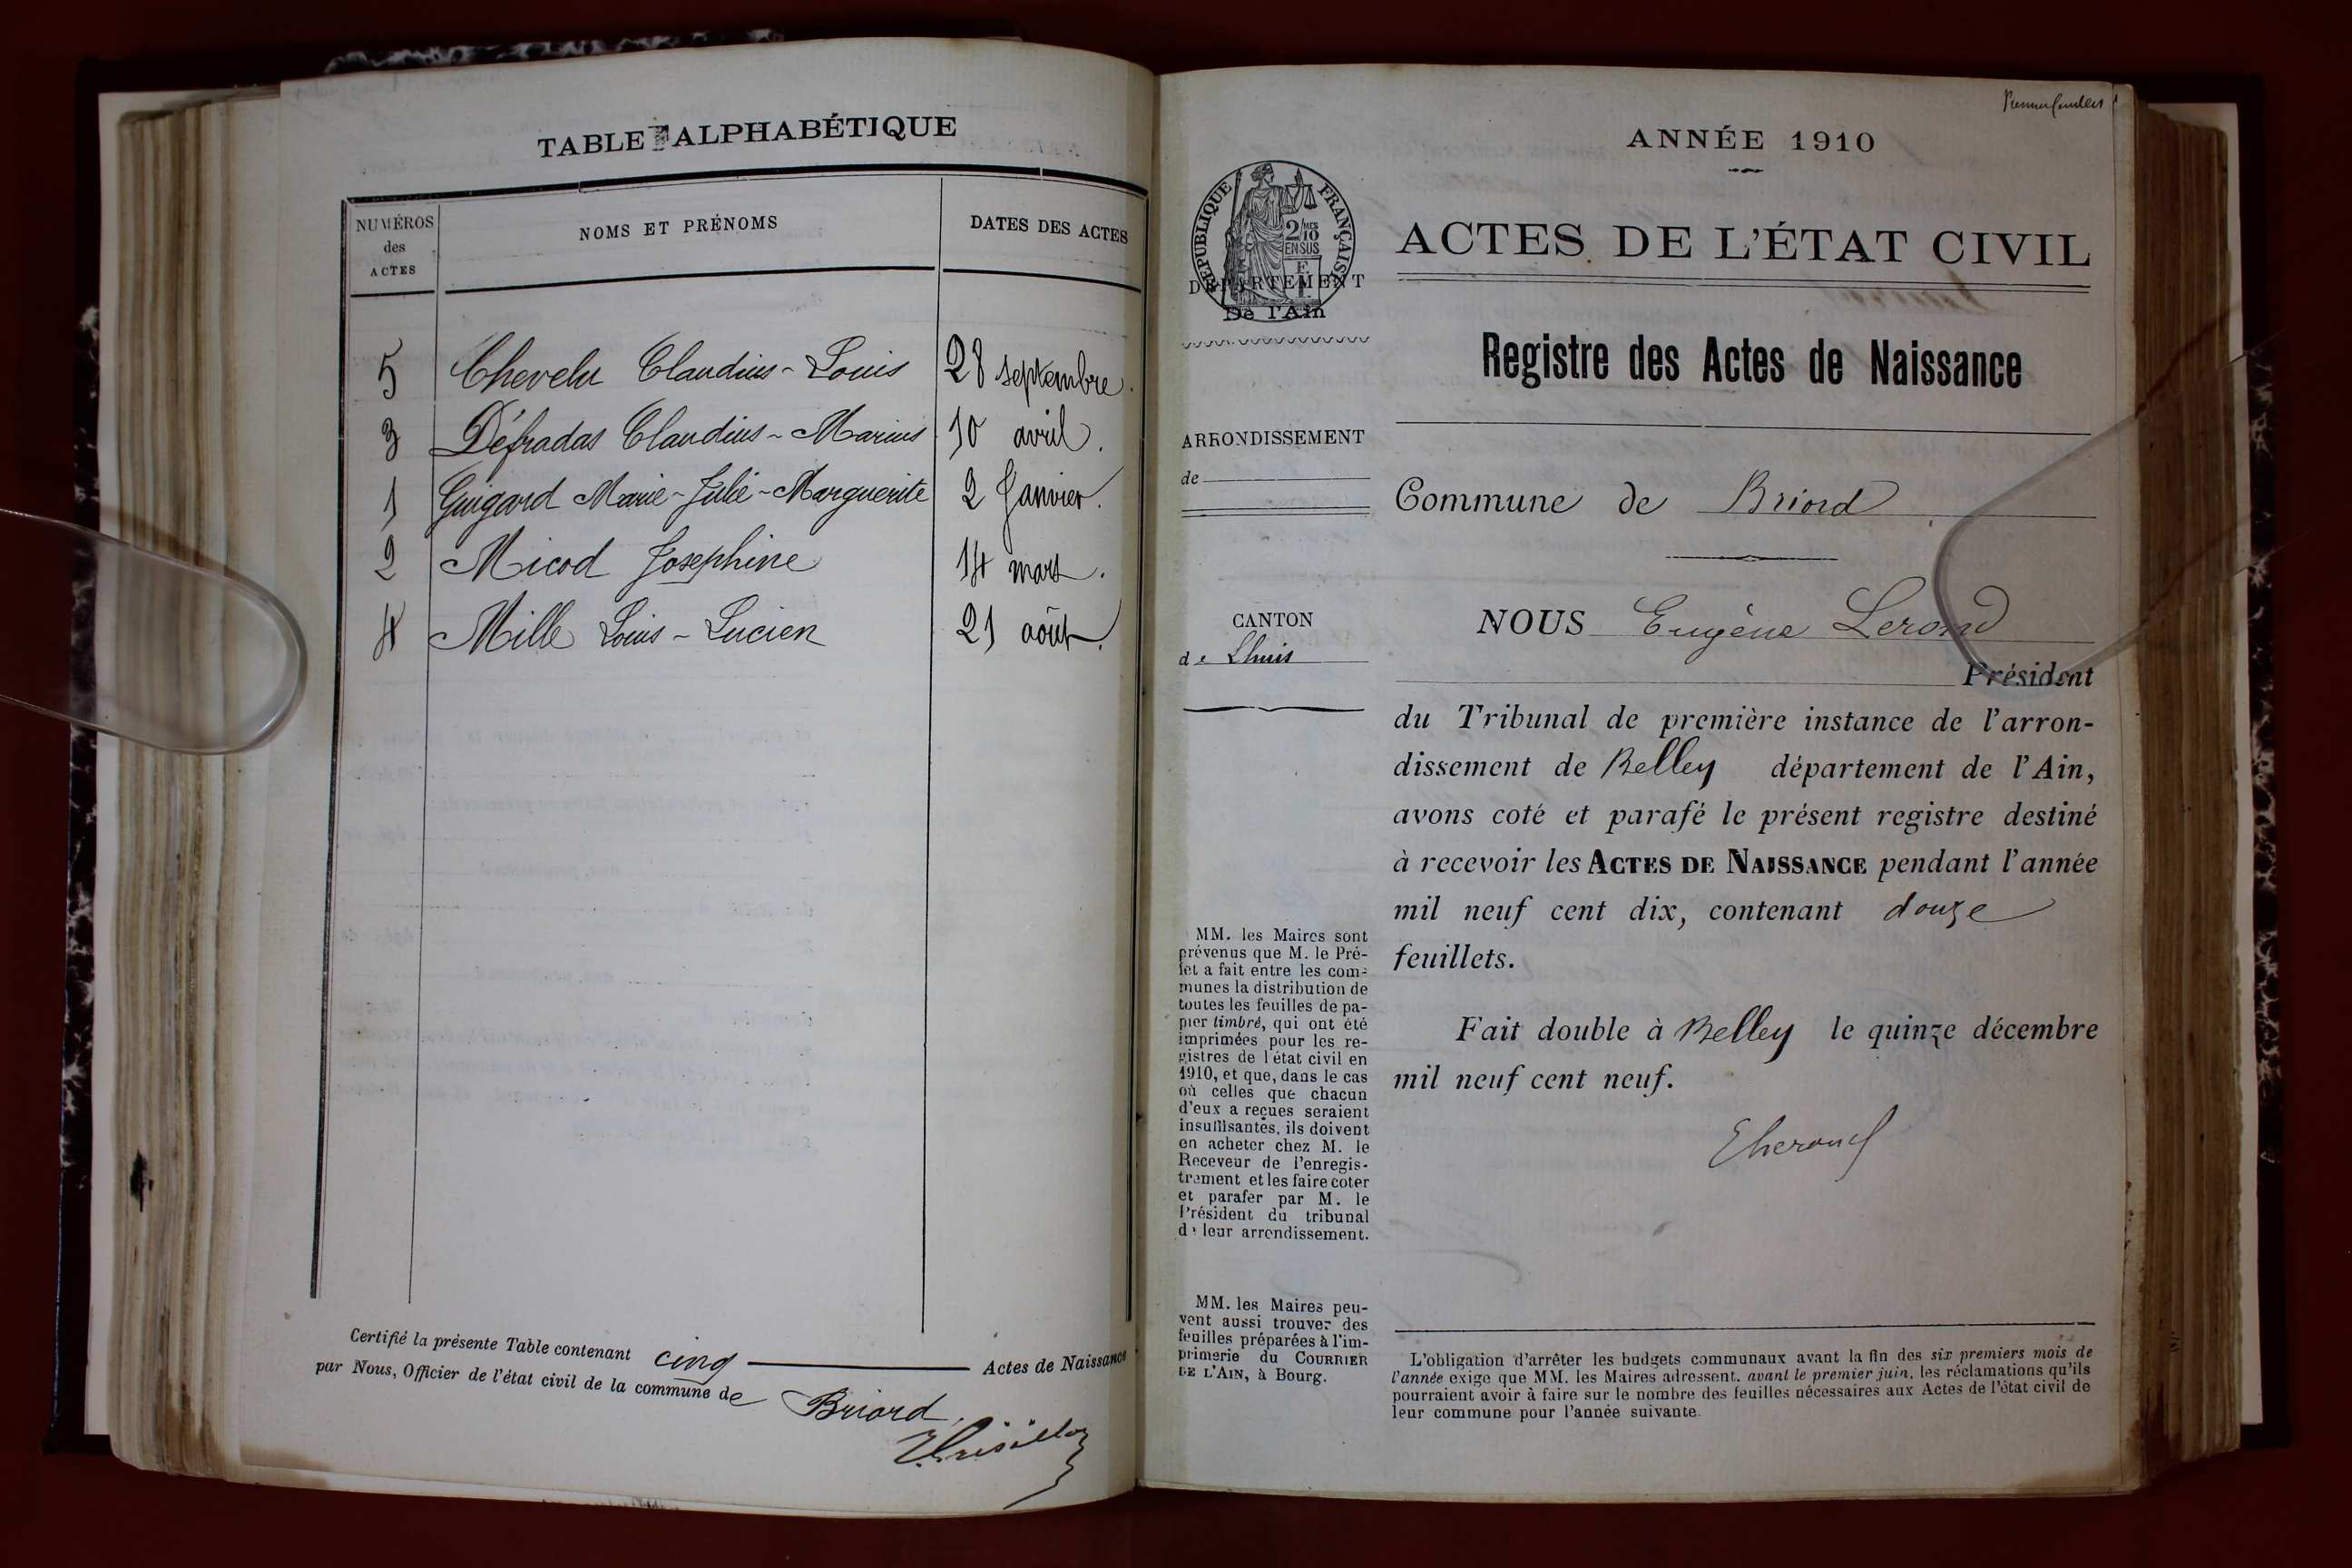 TABLE ALPHABÉTIQUE
NUMÉROS
des
ACTES
NOMS ET PRÉNOMS
DATES DES ACTES
5 Chevelu Claudius-Louis 28 septembre.
3 Défradas Claudius-Marius 10 avril.
1 Guigard Marie-Julie-Marguerite 2 Janvier.
2 Micod Josephine 14 mars.
4 Mille Louis-Lucien 21 août.
Certifié la présente Table contenant cinq Actes de Naissance
par Nous, Officier de l'état civil de la commune de Briord,
Premier feuillet
ANNÉE 1910
RÉPUBLIQUE FRANÇAISE
2/10 MES
EN SUS
DÉPARTEMENT
De l'Ain
ACTES DE L'ÉTAT CIVIL
Registre des Actes de Naissance
ARRONDISSEMENT
de
Commune de Briord
CANTON
de Lhuis
NOUS Eugène Lerond
Président
du Tribunal de première instance de l'arron-
dissement de Belley département de l'Ain,
avons coté et parafé le présent registre destiné
à recevoir les ACTES DE NAISSANCE pendant l'année
mil neuf cent dix, contenant douze
feuillets.
Fait double à Belley le quinze décembre
mil neuf cent neuf.
MM. les Maires sont
prévenus que M. le Pré-
fet a fait entre les com-
munes la distribution de
toutes les feuilles de pa-
pier timbré, qui ont été
imprimées pour les re-
gistres de l'état civil en
1910, et que, dans le cas
où celles que chacun
d'eux a reçues seraient
insuffisantes, ils doivent
en acheter chez M. le
Receveur de l'enregis-
trement et les faire coter
et parafer par M. le
Président du tribunal
de leur arrondissement.
MM. les Maires peu-
vent aussi trouver des
feuilles préparées à l'im-
primerie du COURRIER
DE L'AIN, à Bourg.
L'obligation d'arrêter les budgets communaux avant la fin des six premiers mois de
l'année exige que MM. les Maires adressent, avant le premier juin, les réclamations qu'ils
pourraient avoir à faire sur le nombre des feuilles nécessaires aux Actes de l'état civil de
leur commune pour l'année suivante.